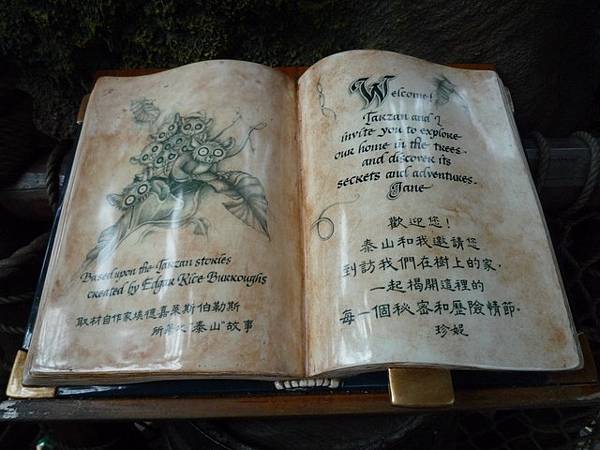 Based upon the Tarzan stories
created by Edgar Rice Burroughs
取材自作家埃德嘉萊斯伯勒斯
"泰山"故事
Welcome!
Tarzan and I
invite you to explore
our home in the trees
and discover its
secrets and adventures.
Jane
歡迎您!
泰山和我邀請您
到訪我們在樹上的家,
一起揭開這裡的
每一個秘密和歷險情節.
珍妮